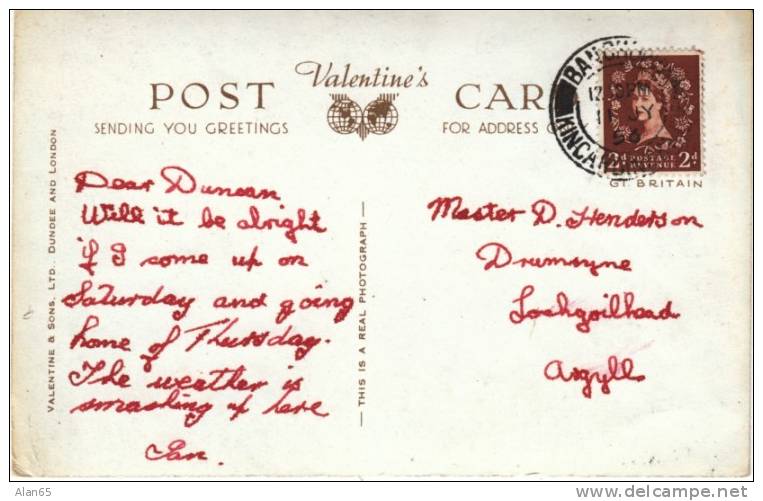 POST Valentine's CARD
SENDING YOU GREETINGS
FOR ADDRESS
BANCHORY
12 PM
11 JY
KINCARDINE
2d POSTAGE REVENUE 2d
GT. BRITAIN
VALENTINE & SONS, LTD., DUNDEE AND LONDON
THIS IS A REAL PHOTOGRAPH
Dear Duncan
Will it be alright
if I come up on
Saturday and going
home of Thursday.
The weather is
smashing up here
Ian.
Master D. Henderson
Drumsyne
Lochgoilhead
Argyll
Alan65
www.delcampe.net